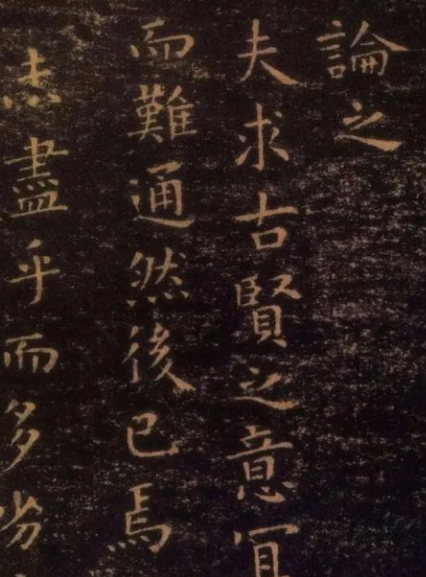 論之
夫求古賢之意宜
而難通然後已焉
未盡乎而多劣